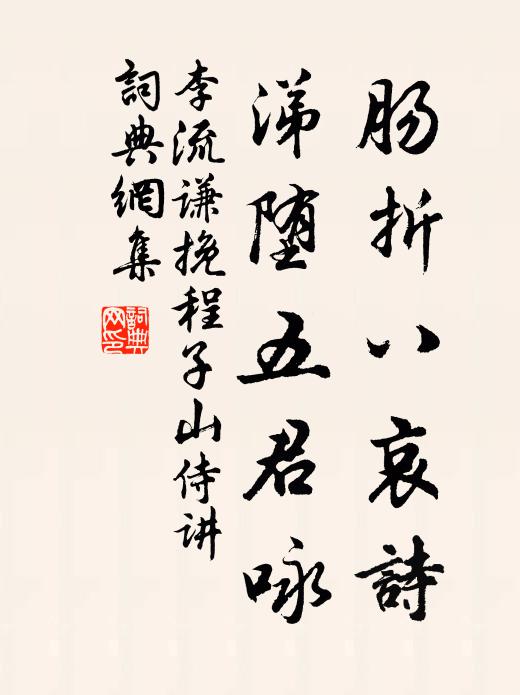 肠折八哀詩
涕堕五君咏
李流谦挽程子山侍讲
詞典網集
詞典网印